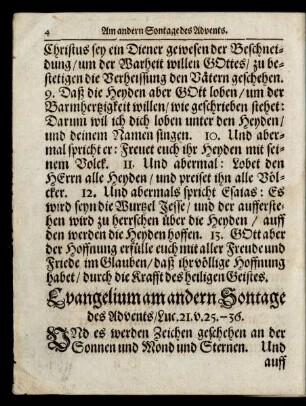 4 Am andern Sontage des Advents.
Christus sey ein Diener gewesen der Beschnei-
dung/ um der Warheit willen GOttes/ zu be-
stetigen die Verheissung den Vätern geschehen.
9. Daß die Heyden aber GOtt loben/ um der
Barmhertzigkeit willen/ wie geschrieben stehet:
Darum wil ich dich loben unter den Heyden/
und deinem Namen singen. 10. Und aber-
mal spricht er: Freuet euch ihr Heyden mit sei-
nem Volck. 11. Und abermal: Lobet den
HErrn alle Heyden/ und preiset ihn alle Völ-
cker. 12. Und abermals spricht Esaias: Es
wird seyn die Wurzel Jesse/ und der aufferste-
hen wird zu herrschen über die Heyden/ auff
den werden die Heyden hoffen. 13. GOtt aber
der Hoffnung erfülle euch mit aller Freude und
Friede im Glauben/ daß ihr völlige Hoffnung
habet/ durch die Krafft des heiligen Geistes.
Evangelium am andern Sontage
des Advents/ Luc. 21. v. 25.-36.
UNd es werden Zeichen geschehen an der
Sonnen und Mond und Sternen. Und
auff